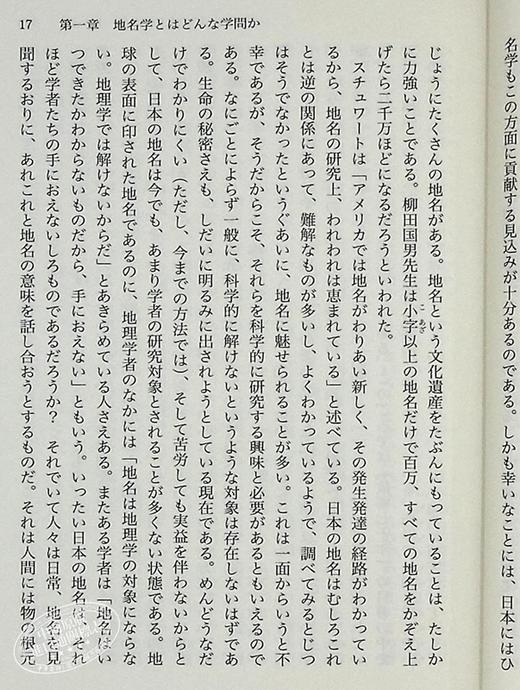 名学もこの方面に貢献する見込みが十分あるのである。しかも幸いなことには、日本にはひ
17　第一章　地名学とはどんな学問か
じょうにたくさんの地名がある。地名という文化遺産をたぶんにもっていることは、たしか
に力強いことである。柳田国男先生は小字以上の地名だけで百万、すべての地名をかぞえ上
こあざ
げたら二千万ほどになるだろうといわれた。
スチュワートは「アメリカでは地名がわりあい新しく、その発生発達の経路がわかってい
るから、地名の研究上、われわれは恵まれている」と述べている。日本の地名はむしろこれ
とは逆の関係にあって、難解なものが多いし、よくわかっているようで、調べてみるとじつ
はそうでなかったというぐあいに、地名に魅せられることが多い。これは一面からいうと不
幸であるが、そうだからこそ、それらを科学的に研究する興味と必要があるともいえるので
ある。なにごとによらず一般に、科学的に解けないというような対象は存在しないはずであ
る。生命の秘密さえも、しだいに明るみに出されようとしている現在である。めんどうなだ
けでわかりにくい（ただし、今までの方法では）、そして苦労しても実益を伴わないからと
して、日本の地名は今でも、あまり学者の研究対象とされることが多くない状態である。地
球の表面に印された地名であるのに、地理学者のなかには「地名は地理学の対象にならな
い。地理学では解けないからだ」とあきらめている人さえある。またある学者は「地名はい
つできたかわからないものだから、手におえない」ともいう。いったい日本の地名は、それ
ほど学者たちの手におえないしろものであるだろうか？　それでいて人々は日常、地名を見
聞するおりに、あれこれと地名の意味を話し合おうとするものだ。それは人間には物の根元